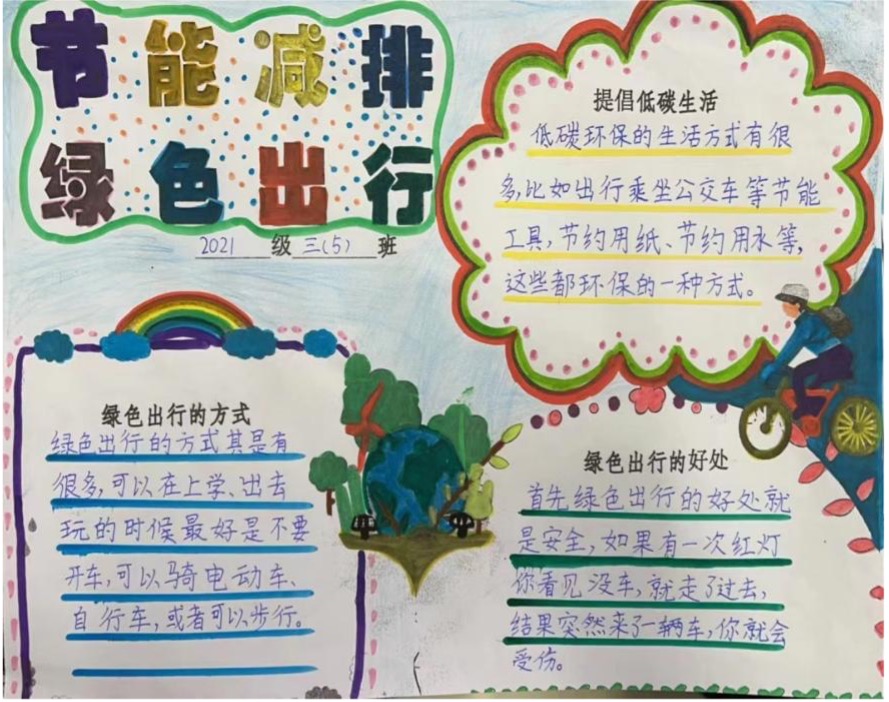 节能减排
绿色出行
2021级三(5)班
提倡低碳生活
低碳环保的生活方式有很
多,比如出行乘坐公交车等节能
工具,节约用纸、节约用水等,
这些都环保的一种方式。
绿色出行的方式
绿色出行的方式其是有
很多,可以在上学、出去
玩的时候最好是不要
开车,可以骑电动车、
自行车,或者可以步行。
绿色出行的好处
首先绿色出行的好处就
是安全,如果有一次红灯
你看见没车,就走了过去,
结果突然来了一辆车,你就会
受伤。